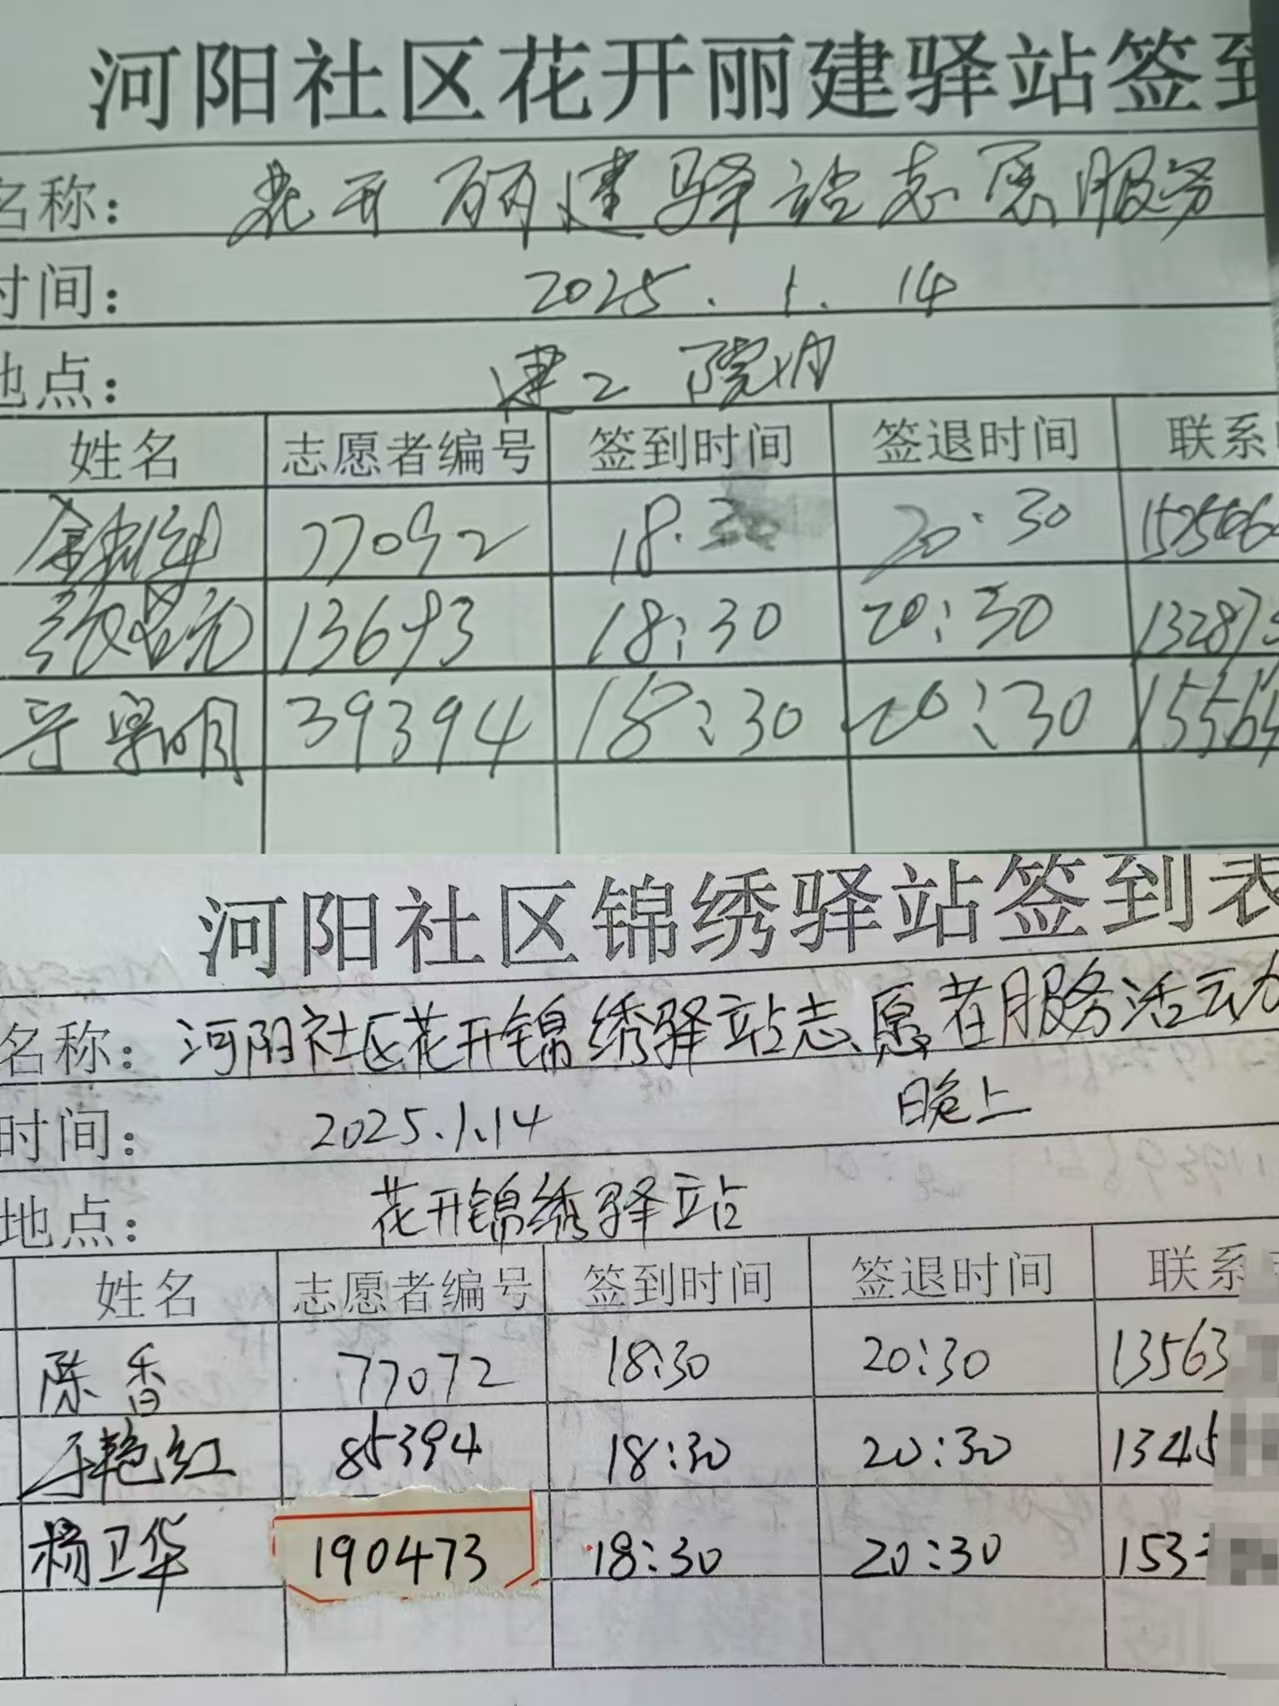 河阳社区花开丽建驿站签到
名称： 花开丽建驿站志愿服务
时间： 2025.1.14
地点： 建工院内
姓名 志愿者编号 签到时间 签退时间 联系
77092 18. 20.30 152506
13693 18:30 20:30 13287
明 39394 18:30 20:30 15564
河阳社区锦绣驿站签到表
名称： 河阳社区花开锦绣驿站志愿者服务活动
时间： 2025.1.14 晚上
地点： 花开锦绣驿站
姓名 志愿者编号 签到时间 签退时间 联系
陈香 77072 18:30 20:30 13563
于艳红 85394 18:30 20:30 1345
杨卫华 190473 18:30 20:30 153